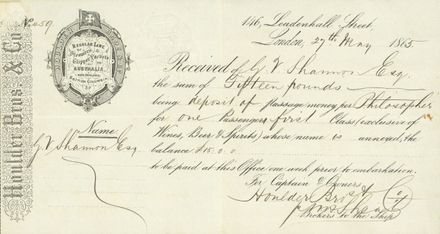 No. 459
Houlder Bros. & Co.
REGULAR LINE
OF
Clipper Packets
AUSTRALIA
146, Leadenhall Street,
London, 27th May 1865
Received of G V Shannon Esq.
the sum of Fifteen pounds
being deposit of passage money per Philosopher
for one Passenger first Class (exclusive of
Wines, Beer & Spirits) whose name is annexed, the
balance £15.0.0
to be paid at this Office one week prior to embarkation.
Name
G V Shannon Esq
For Captain & Owners,
Houlder Bros &
Brokers to the Ship